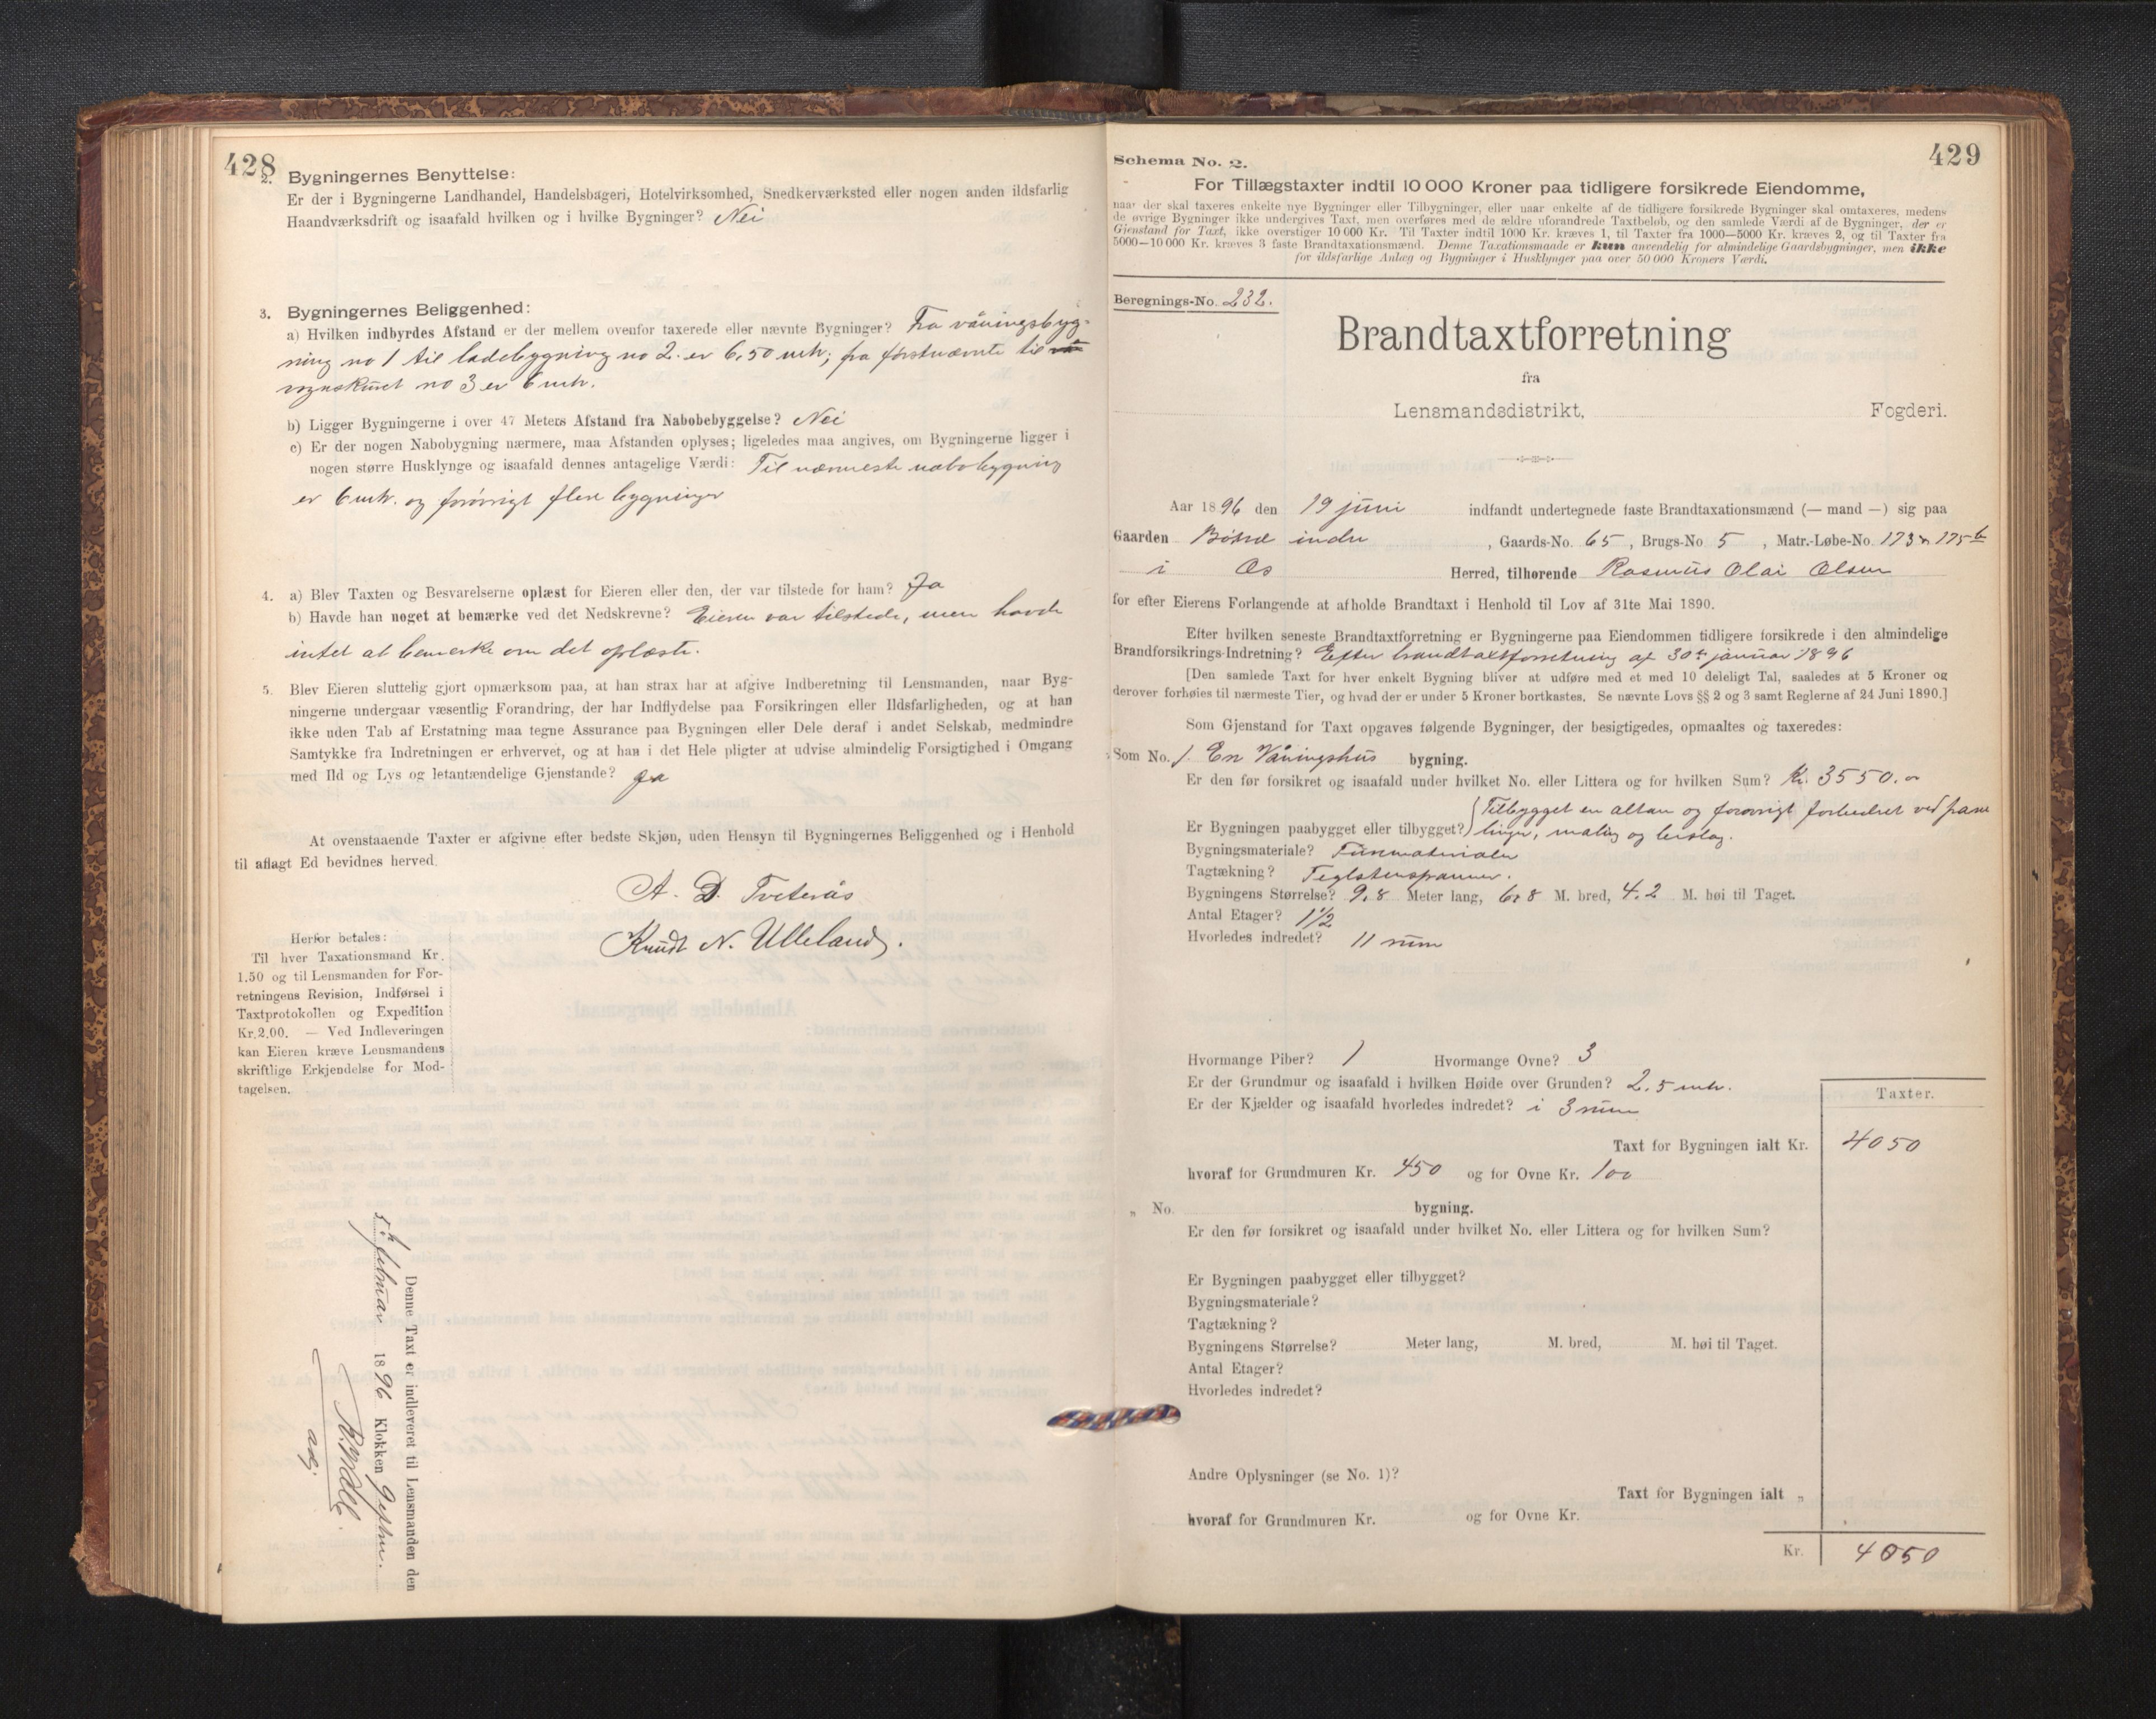 428
2. Bygningernes Benyttelse:
Er der i Bygningerne Landhandel, Handelsbageri, Hotelvirksomhed, Snedkerværksted eller nogen anden ildsfarlig
Haandværksdrift og isaafald hvilken og i hvilke Bygninger? Nei
3. Bygningernes Beliggenhed:
a) Hvilken indbyrdes Afstand er der mellem ovenfor taxerede eller nævnte Bygninger? Fra våningsbyg-
ning no 1 til ladebygning no 2. er 6,50 mtr; fra førstnævnte til
vognskuret no 3 er 6 mtr.
b) Ligger Bygningerne i over 47 Meters Afstand fra Nabobebyggelse? Nei
c) Er der nogen Nabobygning nærmere, maa Afstanden oplyses; ligeledes maa angives, om Bygningerne ligger i
nogen større Husklynge og isaafald dennes antagelige Værdi: Til nærmeste nabobygning
er 6 mtr. og forøvrigt flere bygninger
4. a) Blev Taxten og Besvarelserne oplæst for Eieren eller den, der var tilstede for ham? Ja
b) Havde han noget at bemærke ved det Nedskrevne? Eieren var tilstede, men havde
intet at bemerke om det oplæste.
5. Blev Eieren sluttelig gjort opmærksom paa, at han strax har at afgive Indberetning til Lensmanden, naar Byg-
ningerne undergaar væsentlig Forandring, der har Indflydelse paa Forsikringen eller Ildsfarligheden, og at han
ikke uden Tab af Erstatning maa tegne Assurance paa Bygningen eller Dele deraf i andet Selskab, medmindre
Samtykke fra Indretningen er erhvervet, og at han i det Hele pligter at udvise almindelig Forsigtighed i Omgang
med Ild og Lys og letantændelige Gjenstande? Ja
At ovenstaaende Taxter er afgivne efter bedste Skjøn, uden Hensyn til Bygningernes Beliggenhed og i Henhold
til aflagt Ed bevidnes herved.
A. D. Tveterås
Knudt N. Ulleland.
Herfor betales:
Til hver Taxationsmand Kr.
1.50 og til Lensmanden for For-
retningens Revision, Indførsel i
Taxtprotokollen og Expedition
Kr. 2,00. — Ved Indleveringen
kan Eieren kræve Lensmandens
skriftlige Erkjendelse for Mod-
tagelsen.
Denne Taxt er indleveret til Lensmanden den
5te februar 1896 Klokken
429
Schema No. 2.
For Tillægstaxter indtil 10 000 Kroner paa tidligere forsikrede Eiendomme,
naar der skal taxeres enkelte nye Bygninger eller Tilbygninger, eller naar enkelte af de tidligere forsikrede Bygninger skal omtaxeres, medens
de øvrige Bygninger ikke undergives Taxt, men overføres med de ældre uforandrede Taxtbeløb, og den samlede Værdi af de Bygninger, der er
Gjenstand for Taxt, ikke overstiger 10 000 Kr. Til Taxter indtil 1000 Kr. kræves 1, til Taxter fra 1000—5000 Kr. kræves 2, og til Taxter fra
5000—10 000 Kr. kræves 3 faste Brandtaxationsmænd. Denne Taxationsmaade er kun anvendelig for almindelige Gaardsbygninger, men ikke
for ildsfarlige Anlæg og Bygninger i Husklynger paa over 50 000 Kroners Værdi.
Beregnings-No. 232.
Brandtaxtforretning
fra
Lensmandsdistrikt, Fogderi.
Aar 1896 den 19 juni indfandt undertegnede faste Brandtaxationsmænd (— mand —) sig paa
Gaarden indre, Gaards-No. 65, Brugs-No 5, Matr.-Løbe-No. 173 175b
i Os Herred, tilhørende Rasmus Olai Olsen
for efter Eierens Forlangende at afholde Brandtaxt i Henhold til Lov af 31te Mai 1890.
Efter hvilken seneste Brandtaxtforretning er Bygningerne paa Eiendommen tidligere forsikrede i den almindelige
Brandforsikrings-Indretning? Efter brandtaxtforretning af 30te januar 1896
[Den samlede Taxt for hver enkelt Bygning bliver at udføre med et med 10 deleligt Tal, saaledes at 5 Kroner og
derover forhøies til nærmeste Tier, og hvad der er under 5 Kroner bortkastes. Se nævnte Lovs §§ 2 og 3 samt Reglerne af 24 Juni 1890.]
Som Gjenstand for Taxt opgaves følgende Bygninger, der besigtigedes, opmaaltes og taxeredes:
Som No. 1. En Våningshus bygning.
Er den før forsikret og isaafald under hvilket No. eller Littera og for hvilken Sum? Kr. 3550.
Er Bygningen paabygget eller tilbygget? Tilbygget en altan og forøvrigt forbedret ved pane
linger, maling og
Bygningsmateriale? Tømmatrialer
Tagtækning? Teglstenspanner.
Bygningens Størrelse? 9,8 Meter lang, 6,8 M. bred, 4,2 M. høi til Taget.
Antal Etager? 1½
Hvorledes indredet? 11 rum
Hvormange Piber? 1 Hvormange Ovne? 3
Er der Grundmur og isaafald i hvilken Høide over Grunden? 2,5 mtr.
Er der Kjælder og isaafald hvorledes indredet? i 3 rum
Taxter.
Taxt for Bygningen ialt Kr. 4050
hvoraf for Grundmuren Kr. 450 og for Ovne Kr. 100
„ No. bygning.
Er den før forsikret og isaafald under hvilket No. eller Littera og for hvilken Sum?
Er Bygningen paabygget eller tilbygget?
Bygningsmateriale?
Tagtækning?
Bygningens Størrelse? Meter lang, M. bred, M. høi til Taget.
Antal Etager?
Hvorledes indredet?
Andre Oplysninger (se No. 1)?
Taxt for Bygningen ialt „
hvoraf for Grundmuren Kr. og for Ovne Kr.
Kr. 4050